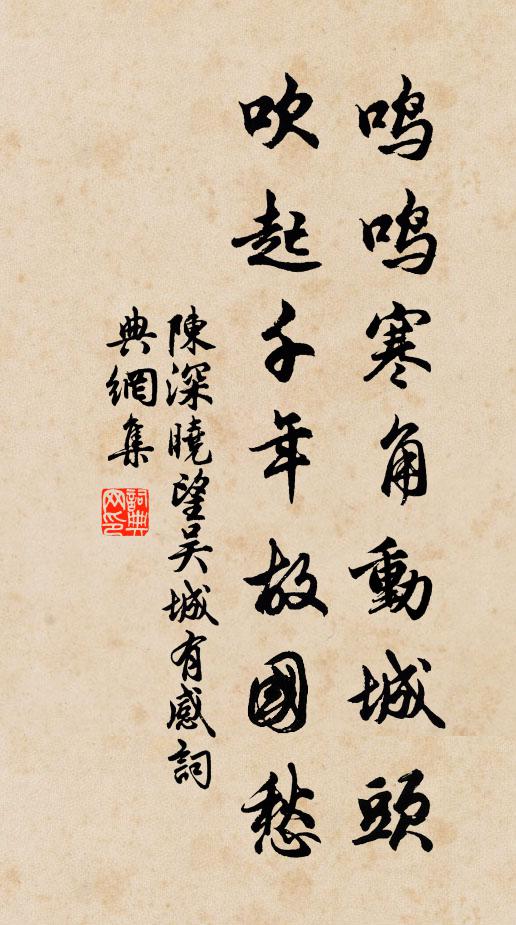 鸣鸣寒角動城頭
吹起千年故國愁
陳深曉望吴城有感詞
典網集
詞典网印